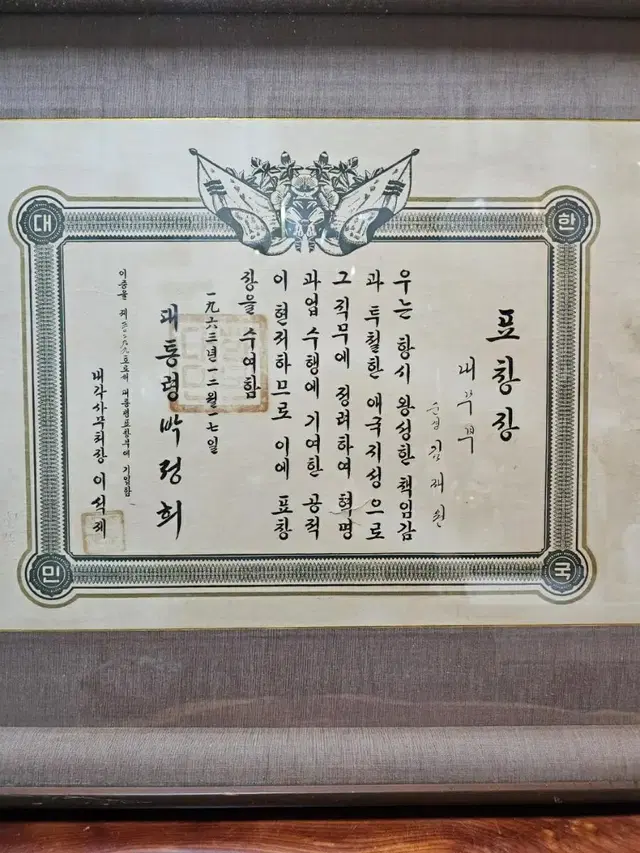 대한민국
표창장
내무부
순경 김재원
우는 항시 왕성한 책임감
과 투철한 애국지성으로
그 직무에 정려하여 혁명
과업 수행에 기여한 공적
이 현저하므로 이에 표창
장을 수여함
一九六三년一二월一七일
대통령 박정희
이증을 제 호로써 대통령표창부에 기입함
내각사무처장 이석제